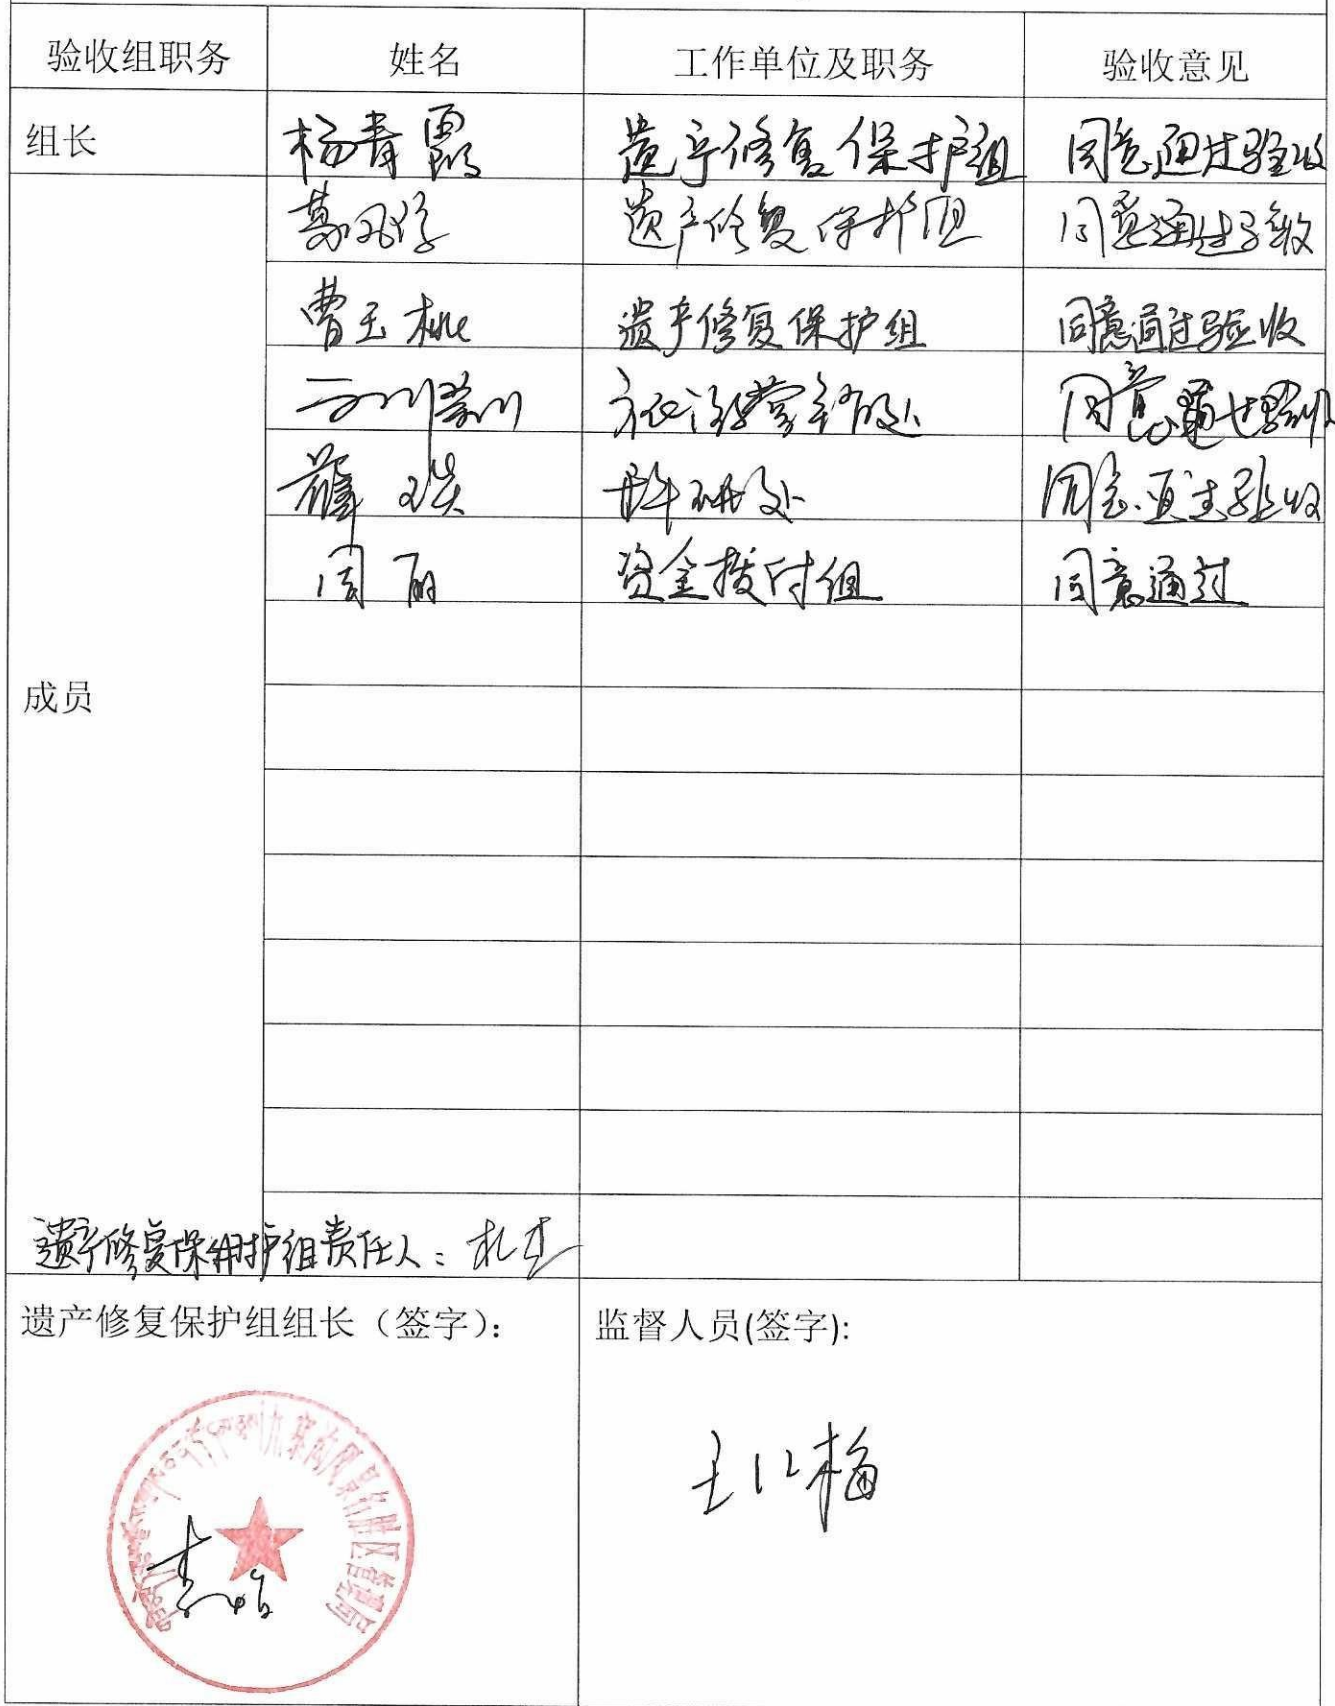 验收组职务 姓名 工作单位及职务 验收意见
组长 杨青霞 遗产修复保护组 同意通过验收
遗产修复保护组 同意通过验收
曹玉桃 遗产修复保护组 同意通过验收
同意通过验收
薛 科研处 同意通过验收
周丽 资金拨付组 同意通过
成员
遗产修复保护组责任人：
遗产修复保护组组长（签字）： 监督人员(签字):
九寨沟风景名胜区管理局
王 梅